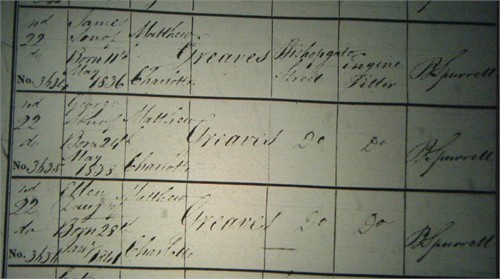 nd James
22 Son of Matthew
do Born 11th Greaves Bishopgate Engine
May Street Fitter B Spurrell
No. 3434 1836 Charlotte
nd George
22 Son of Matthew
do Born 24th Greaves Do Do B Spurrell
May
No. 3435 1838 Charlotte
nd Ellen
22 Daug of Matthew
do Born 25th Greaves Do Do B Spurrell
No. 3436 Jany 1841 Charlotte